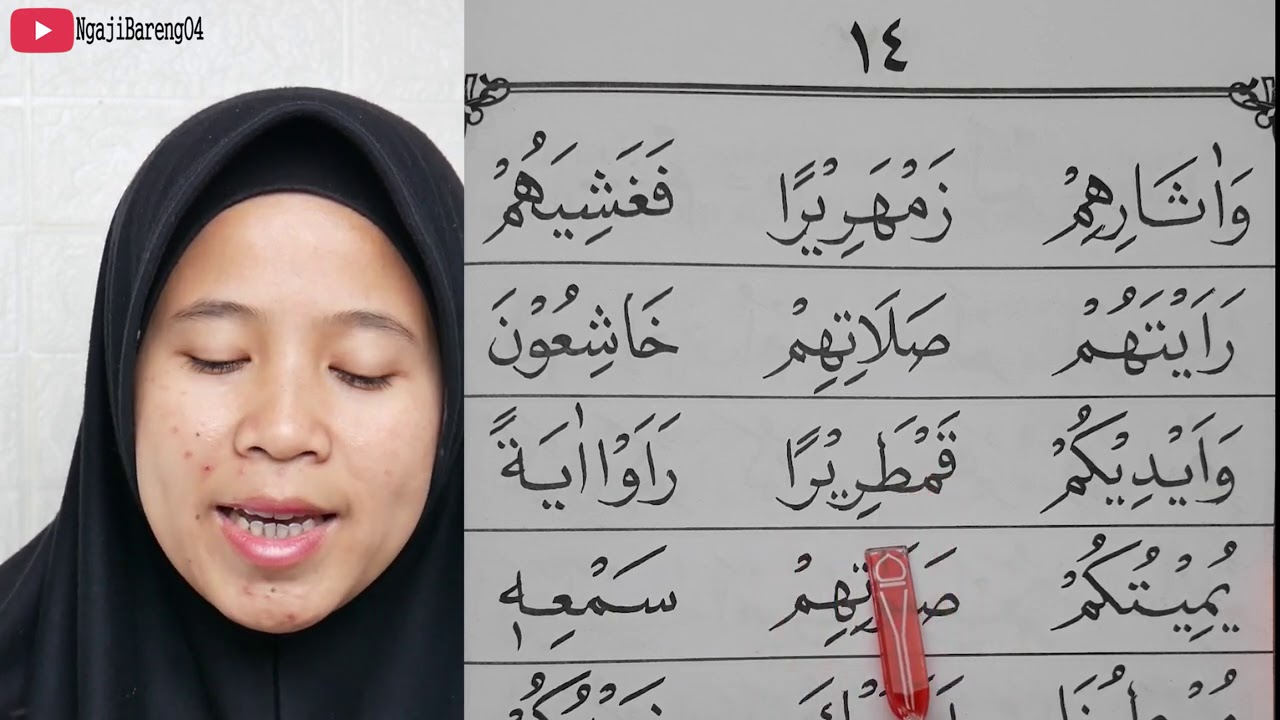 NgajiBareng04
١٤
وَاٰثَارِهِمْ زَمْهَرِيْرًا فَغَشِيَهُمْ
رَاَيْتَهُمْ صَلَاتِهِمْ خَاشِعُوْنَ
وَاَيْدِيْكُمْ قَمْطَرِيْرًا رَاَوْا اٰيَةً
يُمِيْتُكُمْ سَمْعِهٖ